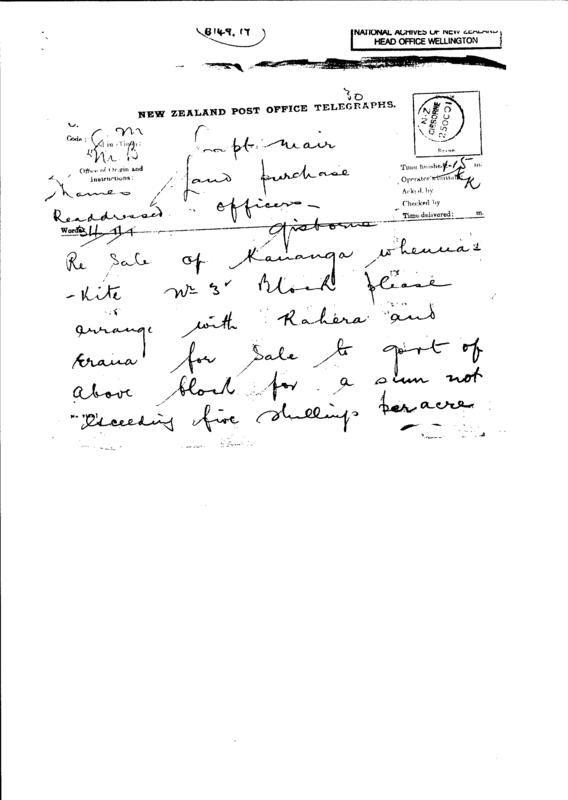 6149.17
NATIONAL ACHIVES OF NEW ZEALAND
HEAD OFFICE WELLINGTON
30
NEW ZEALAND POST OFFICE TELEGRAPHS.
N.Z
GISBORNE
25 OC 01
Code:
Mr B
Office of Origin and
Instructions:
Thames
Readdressed
Words:
Capt. Mair
Land purchase
officer
Gisborne
Time finished: 4-15 m.
Operator's initials:
Ack'd. by
Checked by
Time delivered: m.
Re Sale of whenua
-Kite No 3 Block please
arrange with Rahera and
Eraua for Sale to govt of
above block for a sum not
exceeding five shillings per acre